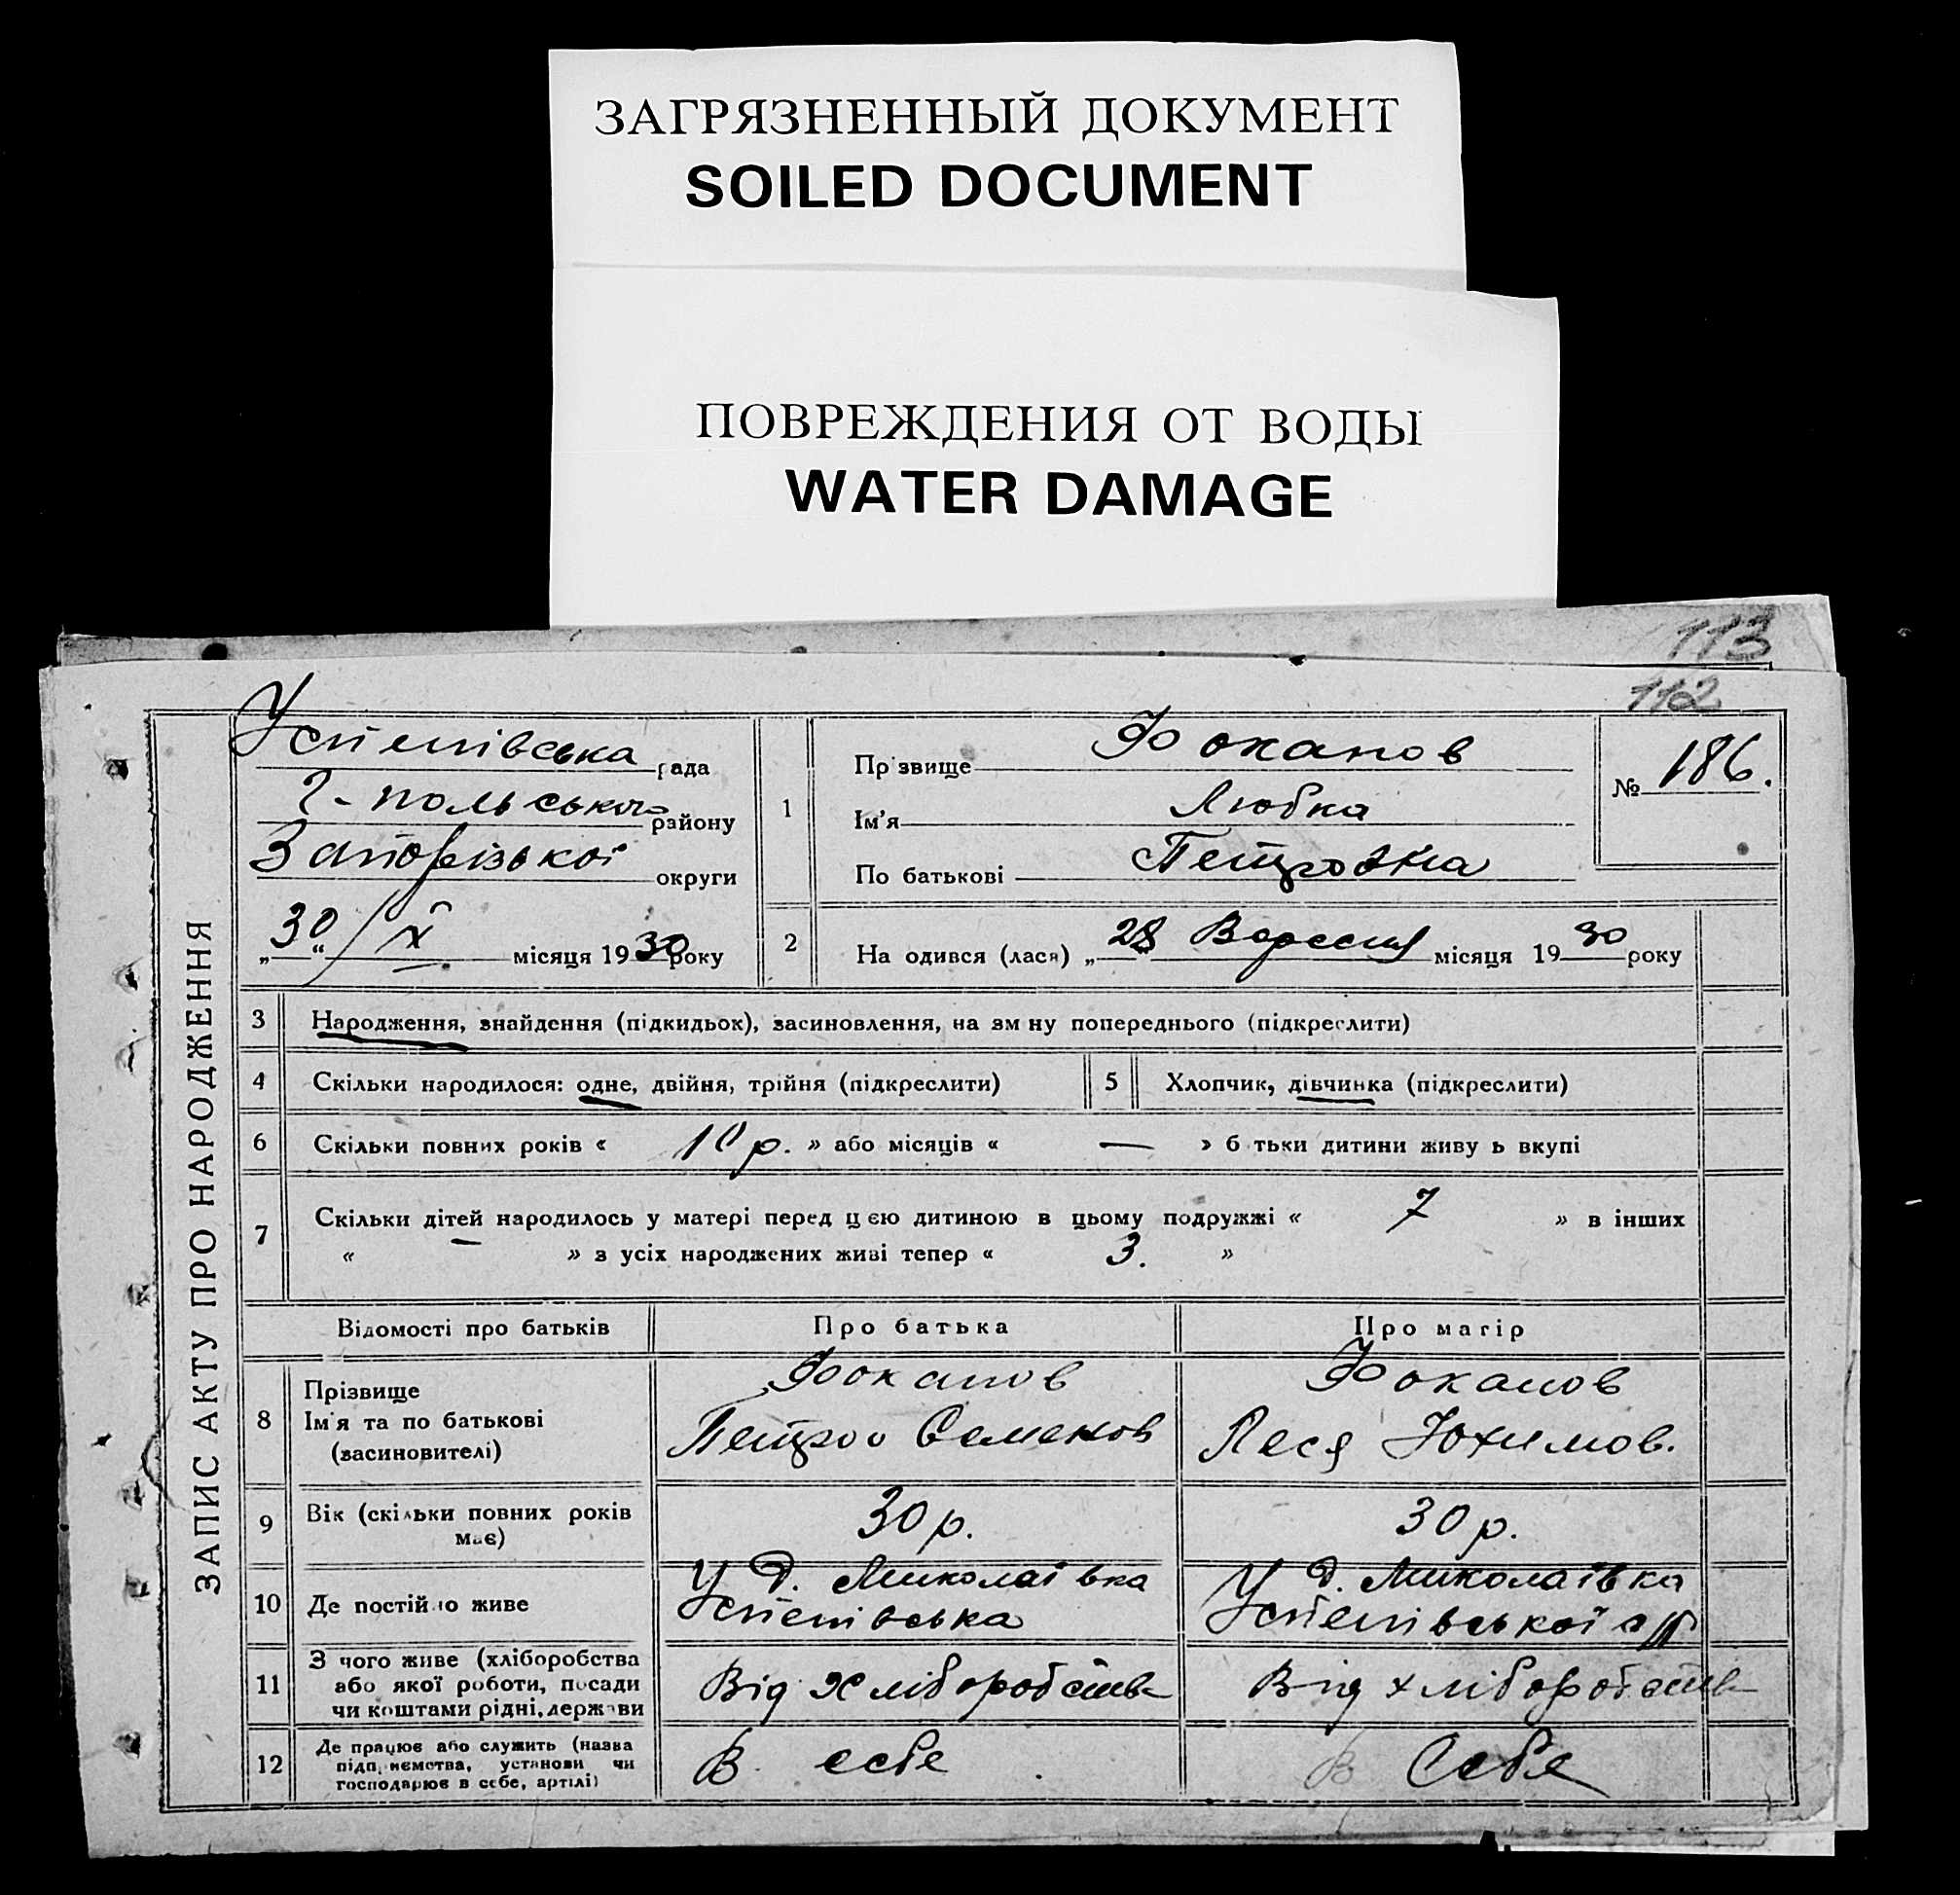 ЗАГРЯЗНЕННЫЙ ДОКУМЕНТ
SOILED DOCUMENT
ПОВРЕЖДЕНИЯ ОТ ВОДЫ
WATER DAMAGE
113
112
ЗАПИС АКТУ ПРО НАРОДЖЕННЯ
Успенівська рада
Г-польського району
Запорізької округи
„30“ / X місяця 1930 року
1
Прізвище Фоканов
Ім'я Любка
По батькові Петровна
№ 186.
2 На одився (лася) „28“ Вересня місяця 1930 року
3 Народження, знайдення (підкидьок), засиновлення, на зм ну попереднього (підкреслити)
4 Скільки народилося: одне, двійня, трійня (підкреслити) 5 Хлопчик, дівчинка (підкреслити)
6 Скільки повних років « 10 р. » або місяців « — » б тьки дитини живу ь вкупі
7 Скільки дітей народилось у матері перед цією дитиною в цьому подружжі « 7 » в інших
« — » з усіх народжених живі тепер « 3. »
Відомості про батьків Про батька Про матір
8 Прізвище Фоканов Фоканов
Ім'я та по батькові Петро Семенов Леся Юхимов.
(засиновителі)
9 Вік (скільки повних років має) 30 р. 30 р.
10 Де постійно живе У д. Миколаївка У д. Миколаївка
Успенівська Успенівської с/р
11 З чого живе (хліборобства
або якої роботи, посади Від хліборобств Від хліборобств
чи коштами рідні, держави
12 Де працює або служить (назва
підп иємства, установи чи В себе В себе
господарює в себе, артілі)